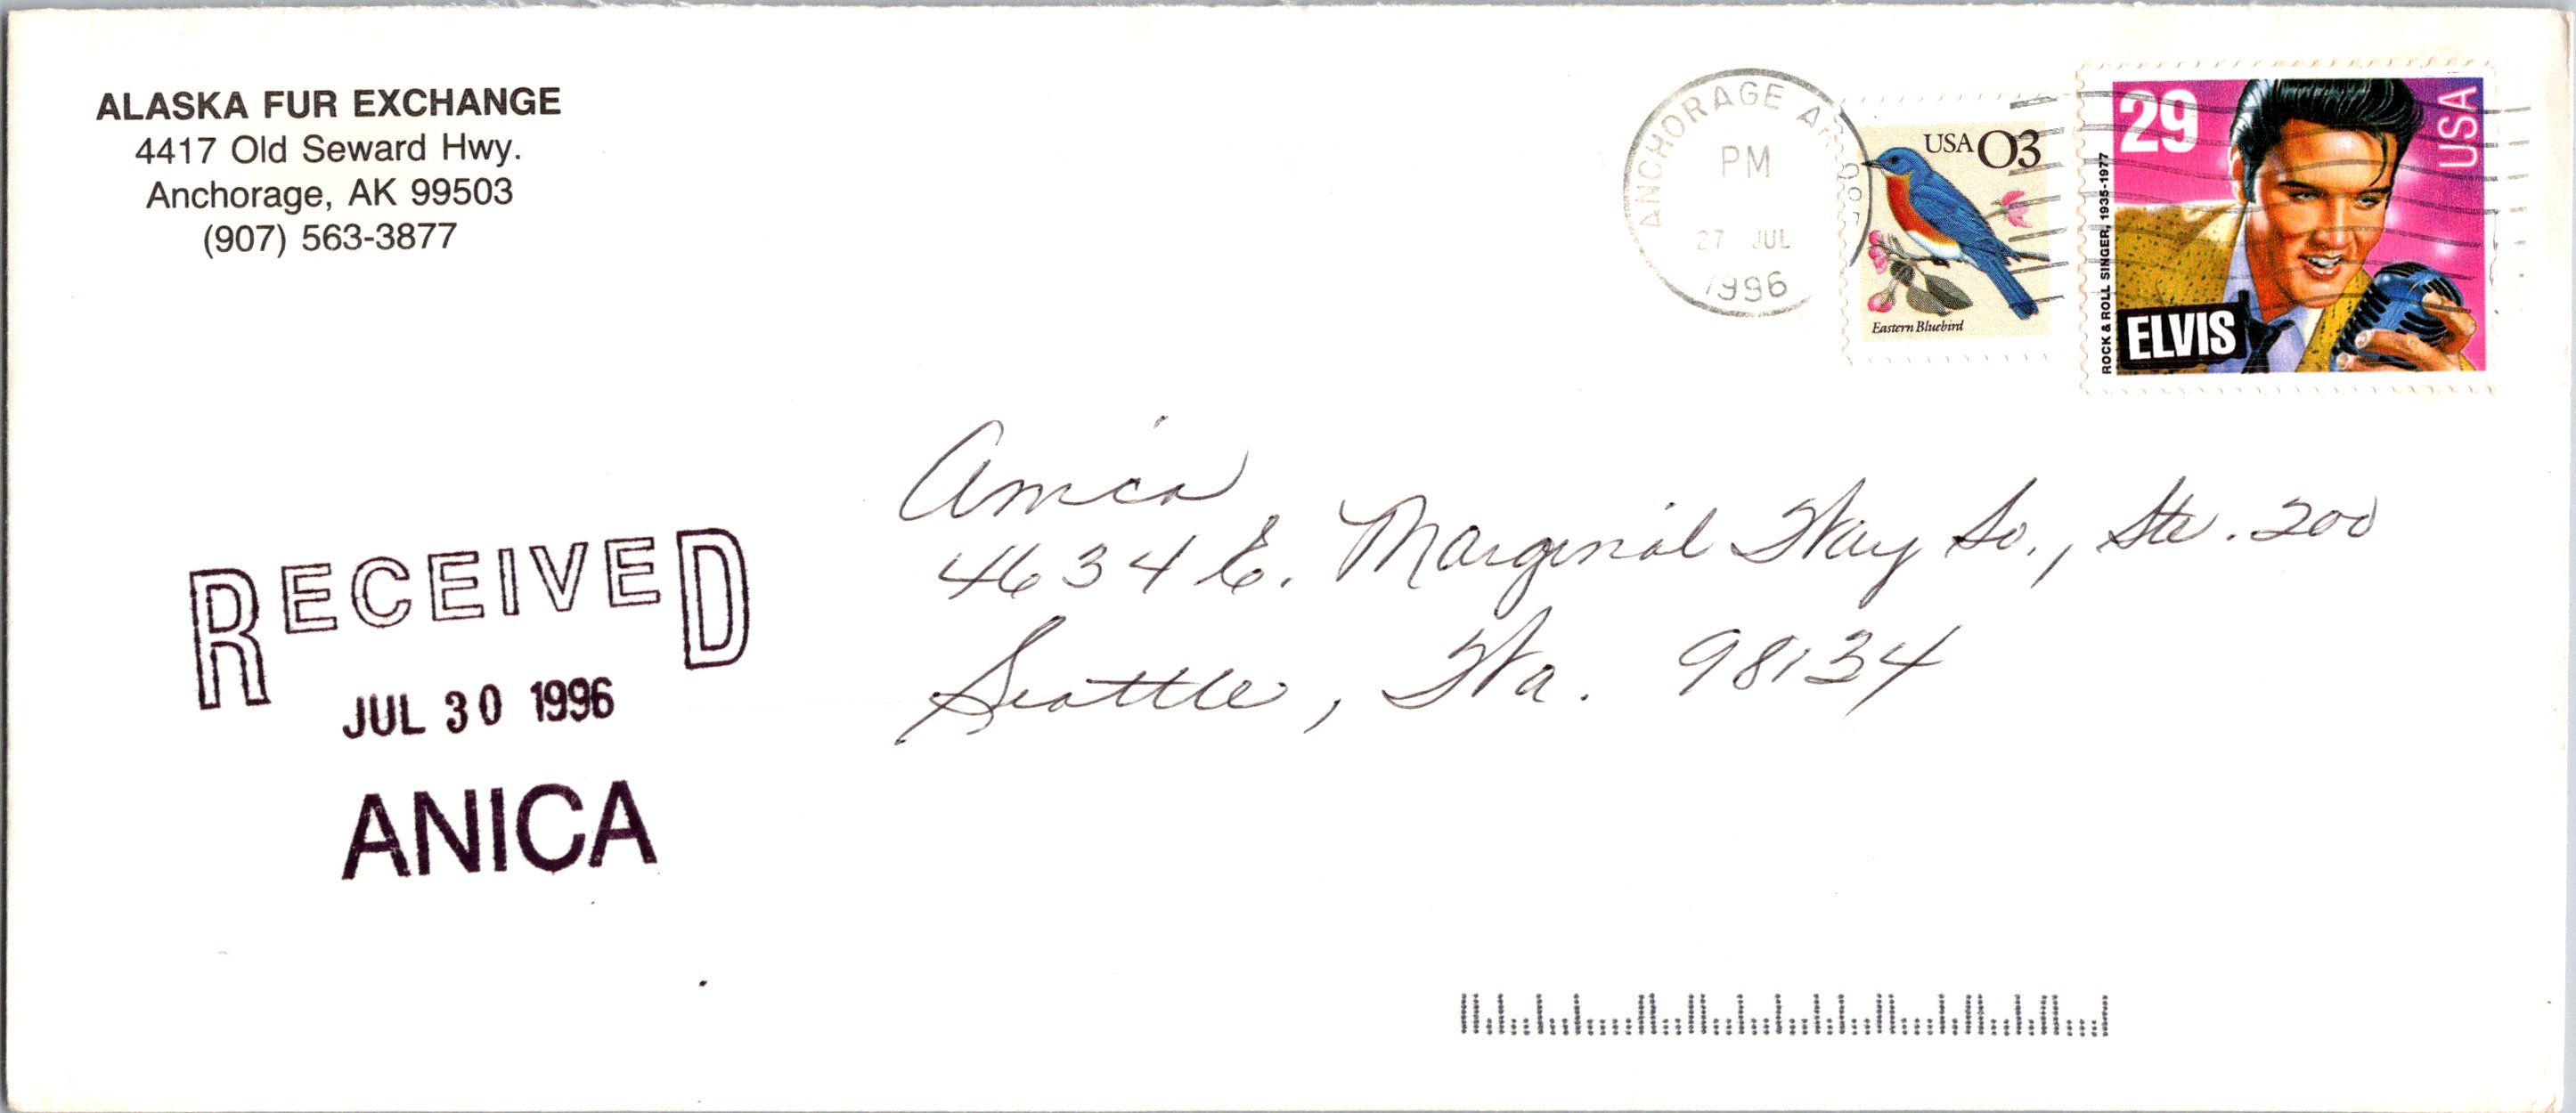 ALASKA FUR EXCHANGE
4417 Old Seward Hwy.
Anchorage, AK 99503
(907) 563-3877
ANCHORAGE
PM
27 JUL
1996
USA 03
Eastern Bluebird
29
USA
ROCK & ROLL SINGER, 1935-1977
ELVIS
Anica
4634 E. Marginal Way So., Ste. 200
Seattle, Wa. 98134
RECEIVED
JUL 30 1996
ANICA